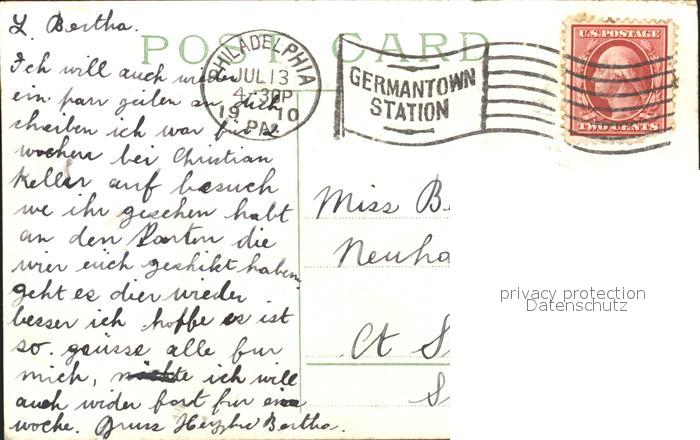 L. Bertha.
POST CARD
Ich will auch wieder
ein parr zeilen an dich
shreiben ich war für
wochen bei Christian
Keller auf besuch
we ihr gesehen habt
an den Karten die
wier euch geshikt haben.
geht es dier wieder
besser ich hoffe es ist
so. grüsse alle fur
mich, ich will
auch wider fort fur eine
woche. Gruss Bertha.
PHILADELPHIA
JUL 13
4-30P
1910
PA.
GERMANTOWN
STATION
U.S. POSTAGE
TWO CENTS
Miss B
Neuha
Ct S
S
privacy protection
Datenschutz